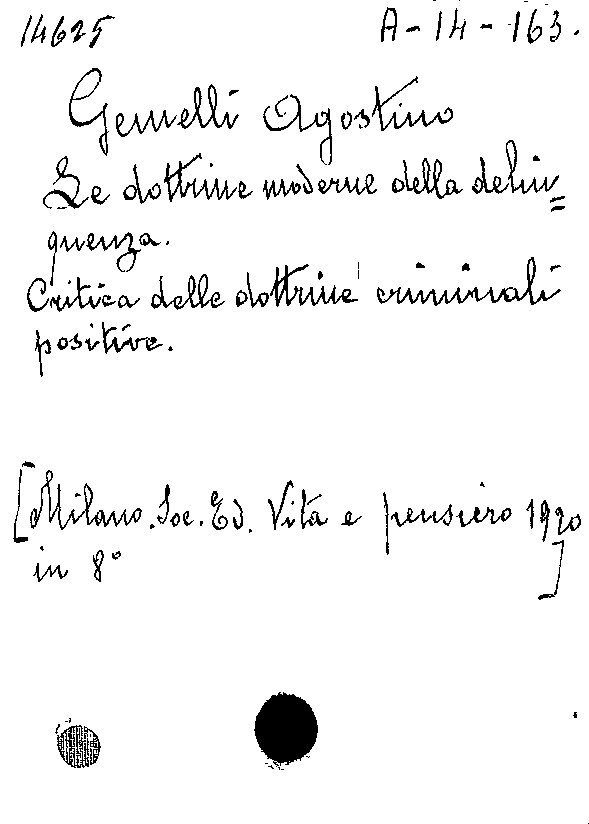 14625 A-14-163.
Gemelli Agostino
Le dottrine moderne della delin=
quenza.
Critica delle dottrine criminali
positive.
[Milano. Soc. Ed. Vita e pensiero 1920
in 8°]